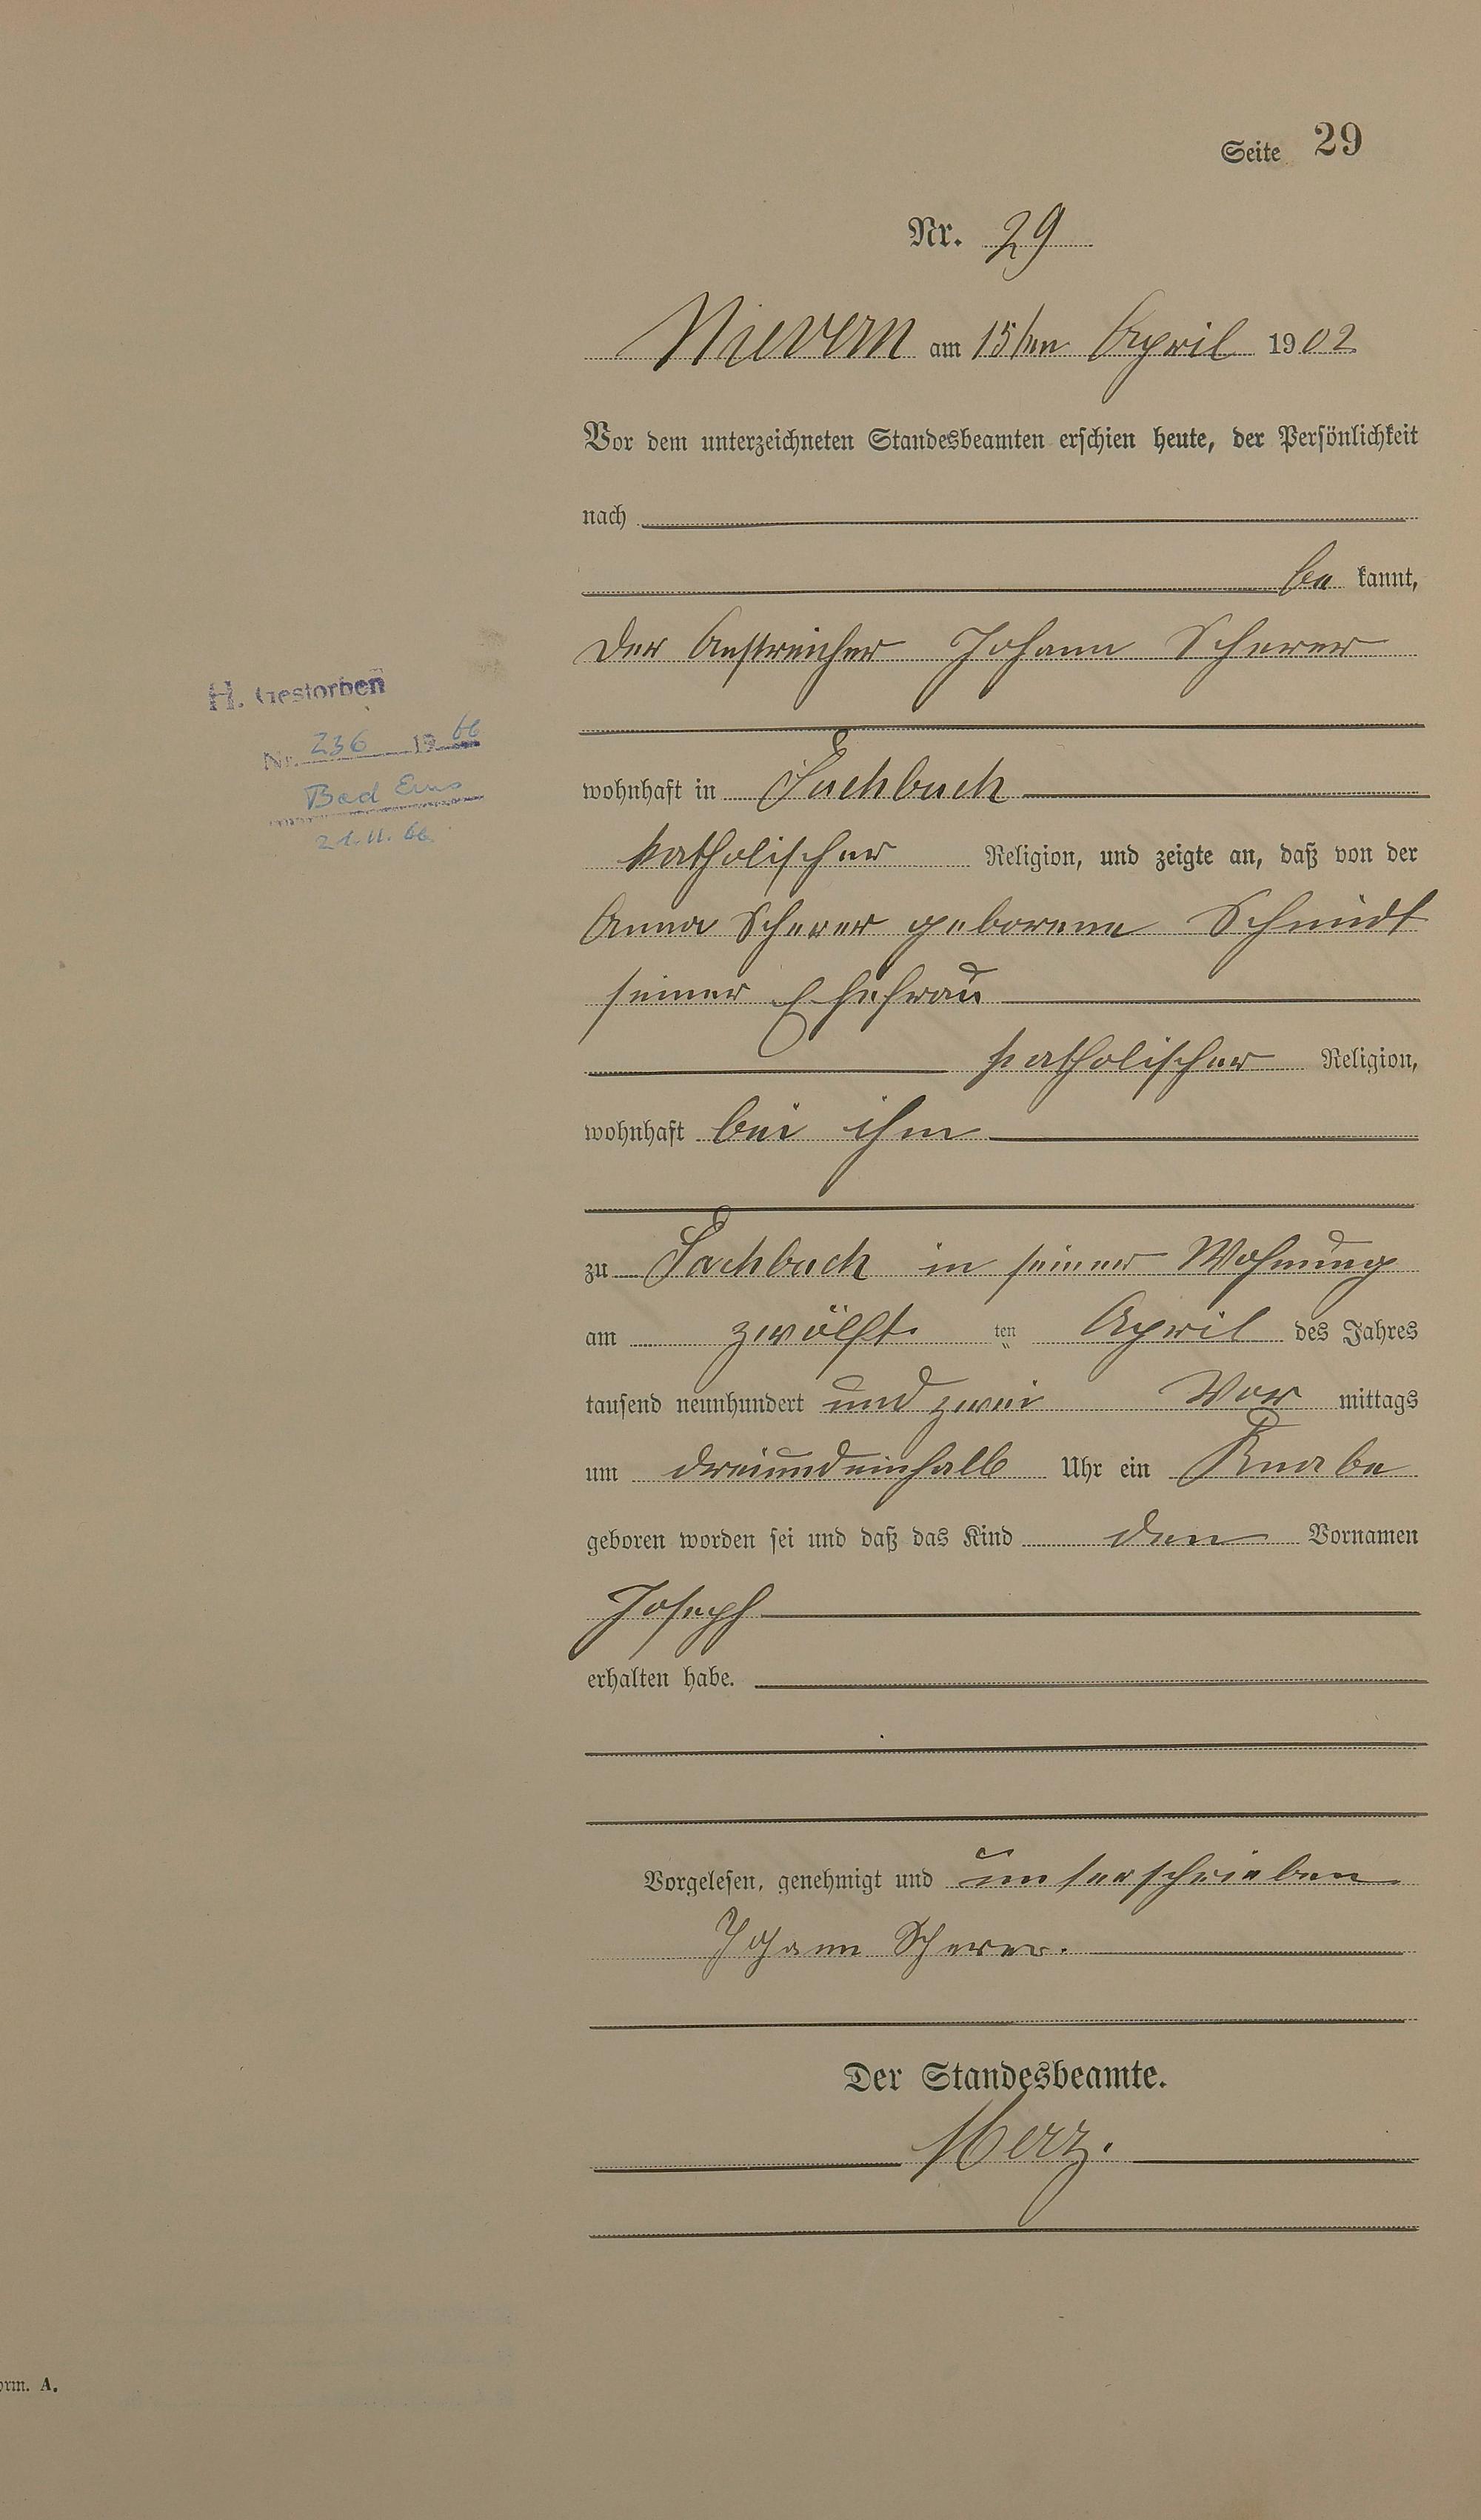 Seite 29
Nr. 29
Nievern am 15ten April 1902
Vor dem unterzeichneten Standesbeamten erschien heute, der Persönlichkeit
nach
be kannt,
der Anstreicher Johann Scherer
H. Gestorben
Nr. 236 1966
Bad Ems
21.11.66.
wohnhaft in Fachbach
katholischer Religion, und zeigte an, daß von der
Anna Scherer geborene Schmidt
seiner Ehefrau
katholischer Religion,
wohnhaft bei ihm
zu Fachbach in seiner Wohnung
am zwölft ten April des Jahres
tausend neunhundert und zwei Vor mittags
um dreiundeinhalb Uhr ein Knabe
geboren worden sei und daß das Kind den Vornamen
Joseph
erhalten habe.
Vorgelesen, genehmigt und unterschrieben
Johann Scherer.
Der Standesbeamte.
Merz.
orm. A.